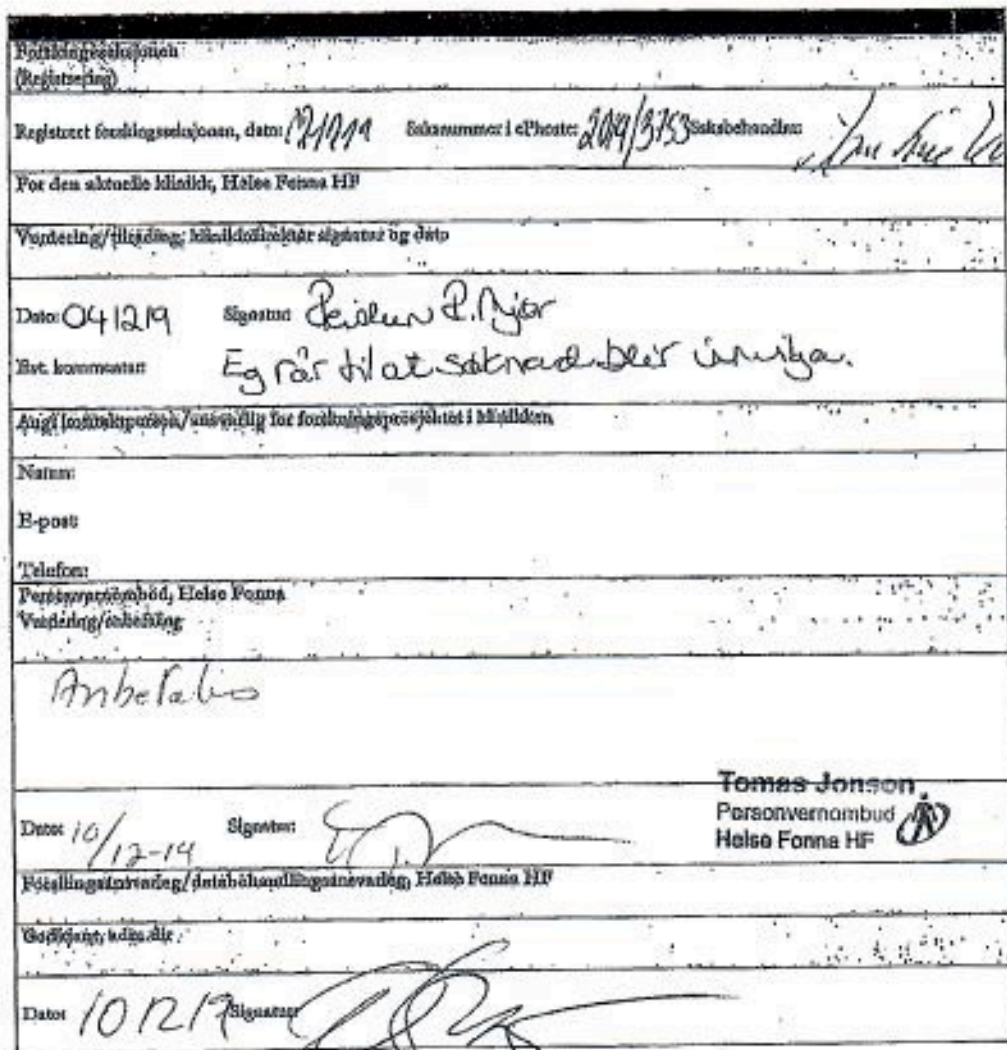 Forskingsseksjonen
(Registrering)
Registrert forskingsseksjonen, dato: Saksnummer i ePhorte: 2019/3753 Saksbehandler:
For den aktuelle klinikk, Helse Fonna HF
Vurdering/tilråding; klinikkdirektør signatur og dato
Dato: 041219 Signatur:
Evt. kommentar: Eg rår til at søknaden blir
Angi kontaktperson/ansvarlig for forskningsprosjektet i klinikken
Namn:
E-post:
Telefon:
Personvernombod, Helse Fonna
Vurdering/anbefaling
Anbefales
Tomas Jonson
Personvernombud
Helse Fonna HF
Dato: 10/12-19 Signatur:
Forskningsansvarleg/databehandlingsansvarleg, Helse Fonna HF
Godkjent, adm.dir.
Dato: 101219 Signatur: